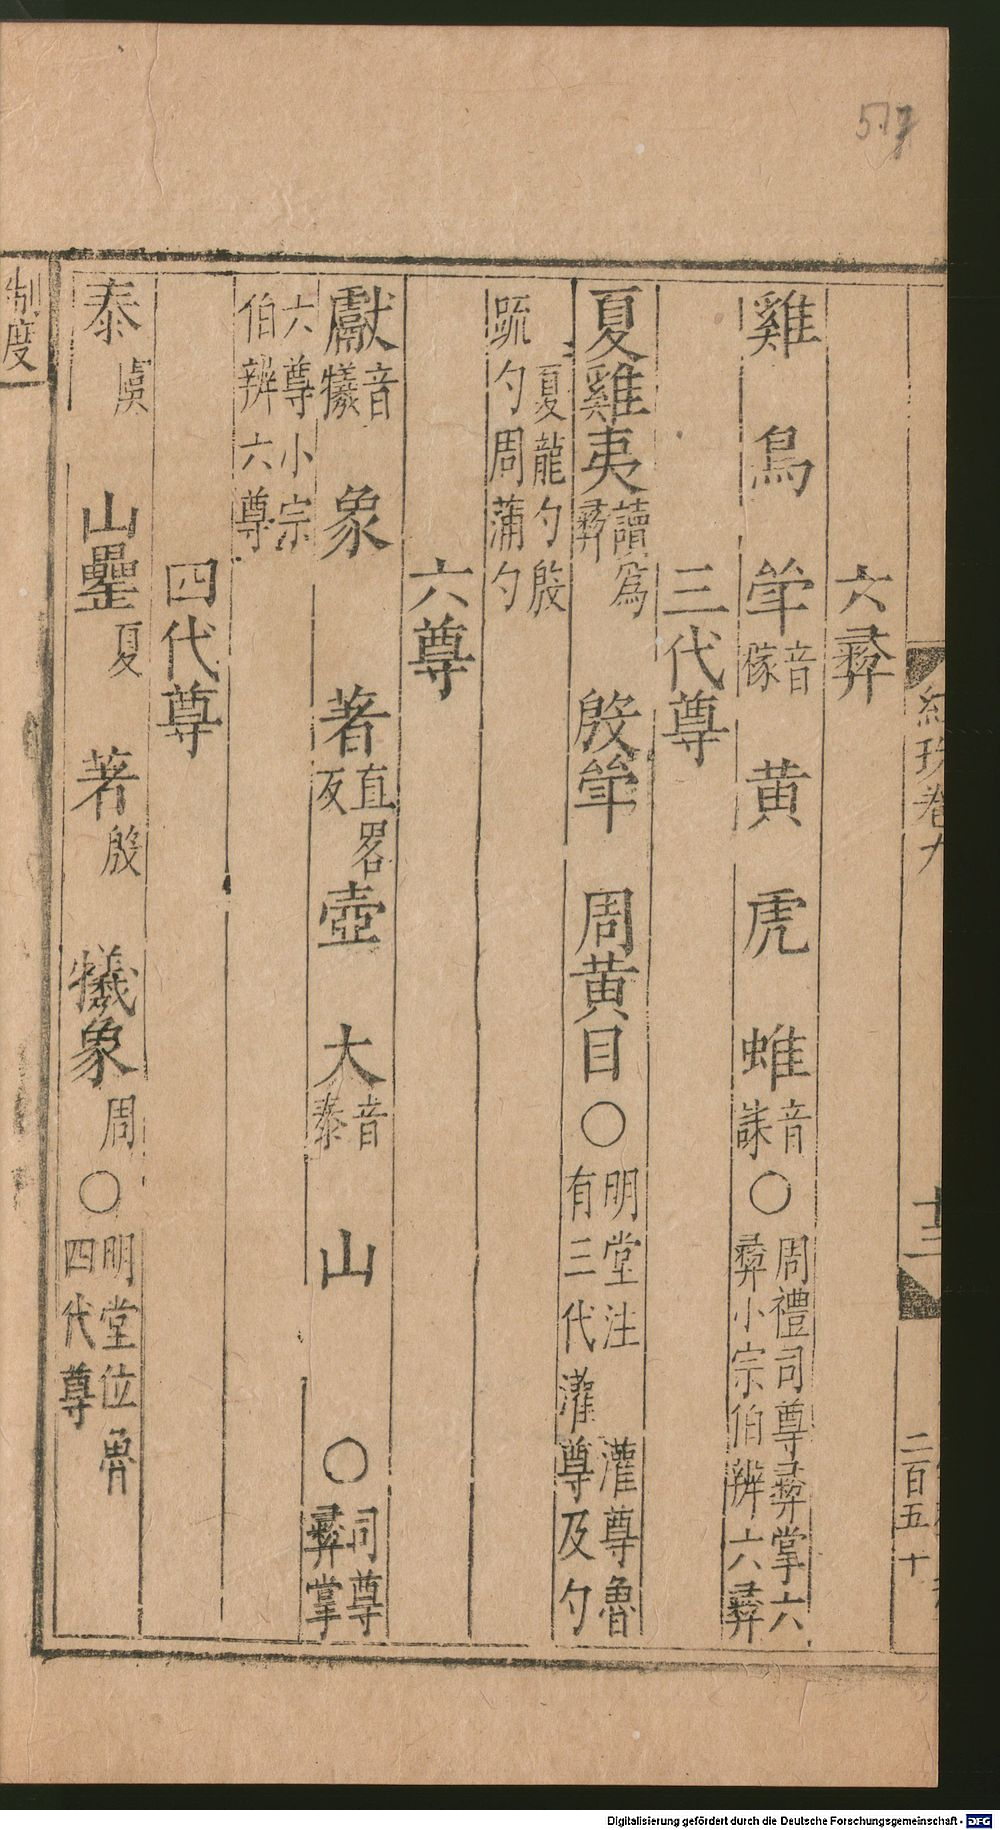 517
紀珠卷九
十三
二百五十
六彝
雞 鳥 斝音稼 黄 虎 蜼音誄〇周禮司尊彝掌六彝小宗伯辨六彝
三代尊
夏雞夷讀爲彝 殷斝 周黄目〇明堂注 灌尊魯有三代灌尊及勺
夏龍勺殷疏勺周蒲勺
六尊
獻音犧 象 著直畧反 壺 大音泰 山 〇司尊彝掌
六尊小宗伯辨六尊
四代尊
泰虞 山罍夏 著殷 犧象周〇明堂位魯四代尊
制度
Digitalisierung gefördert durch die Deutsche Forschungsgemeinschaft - DFG